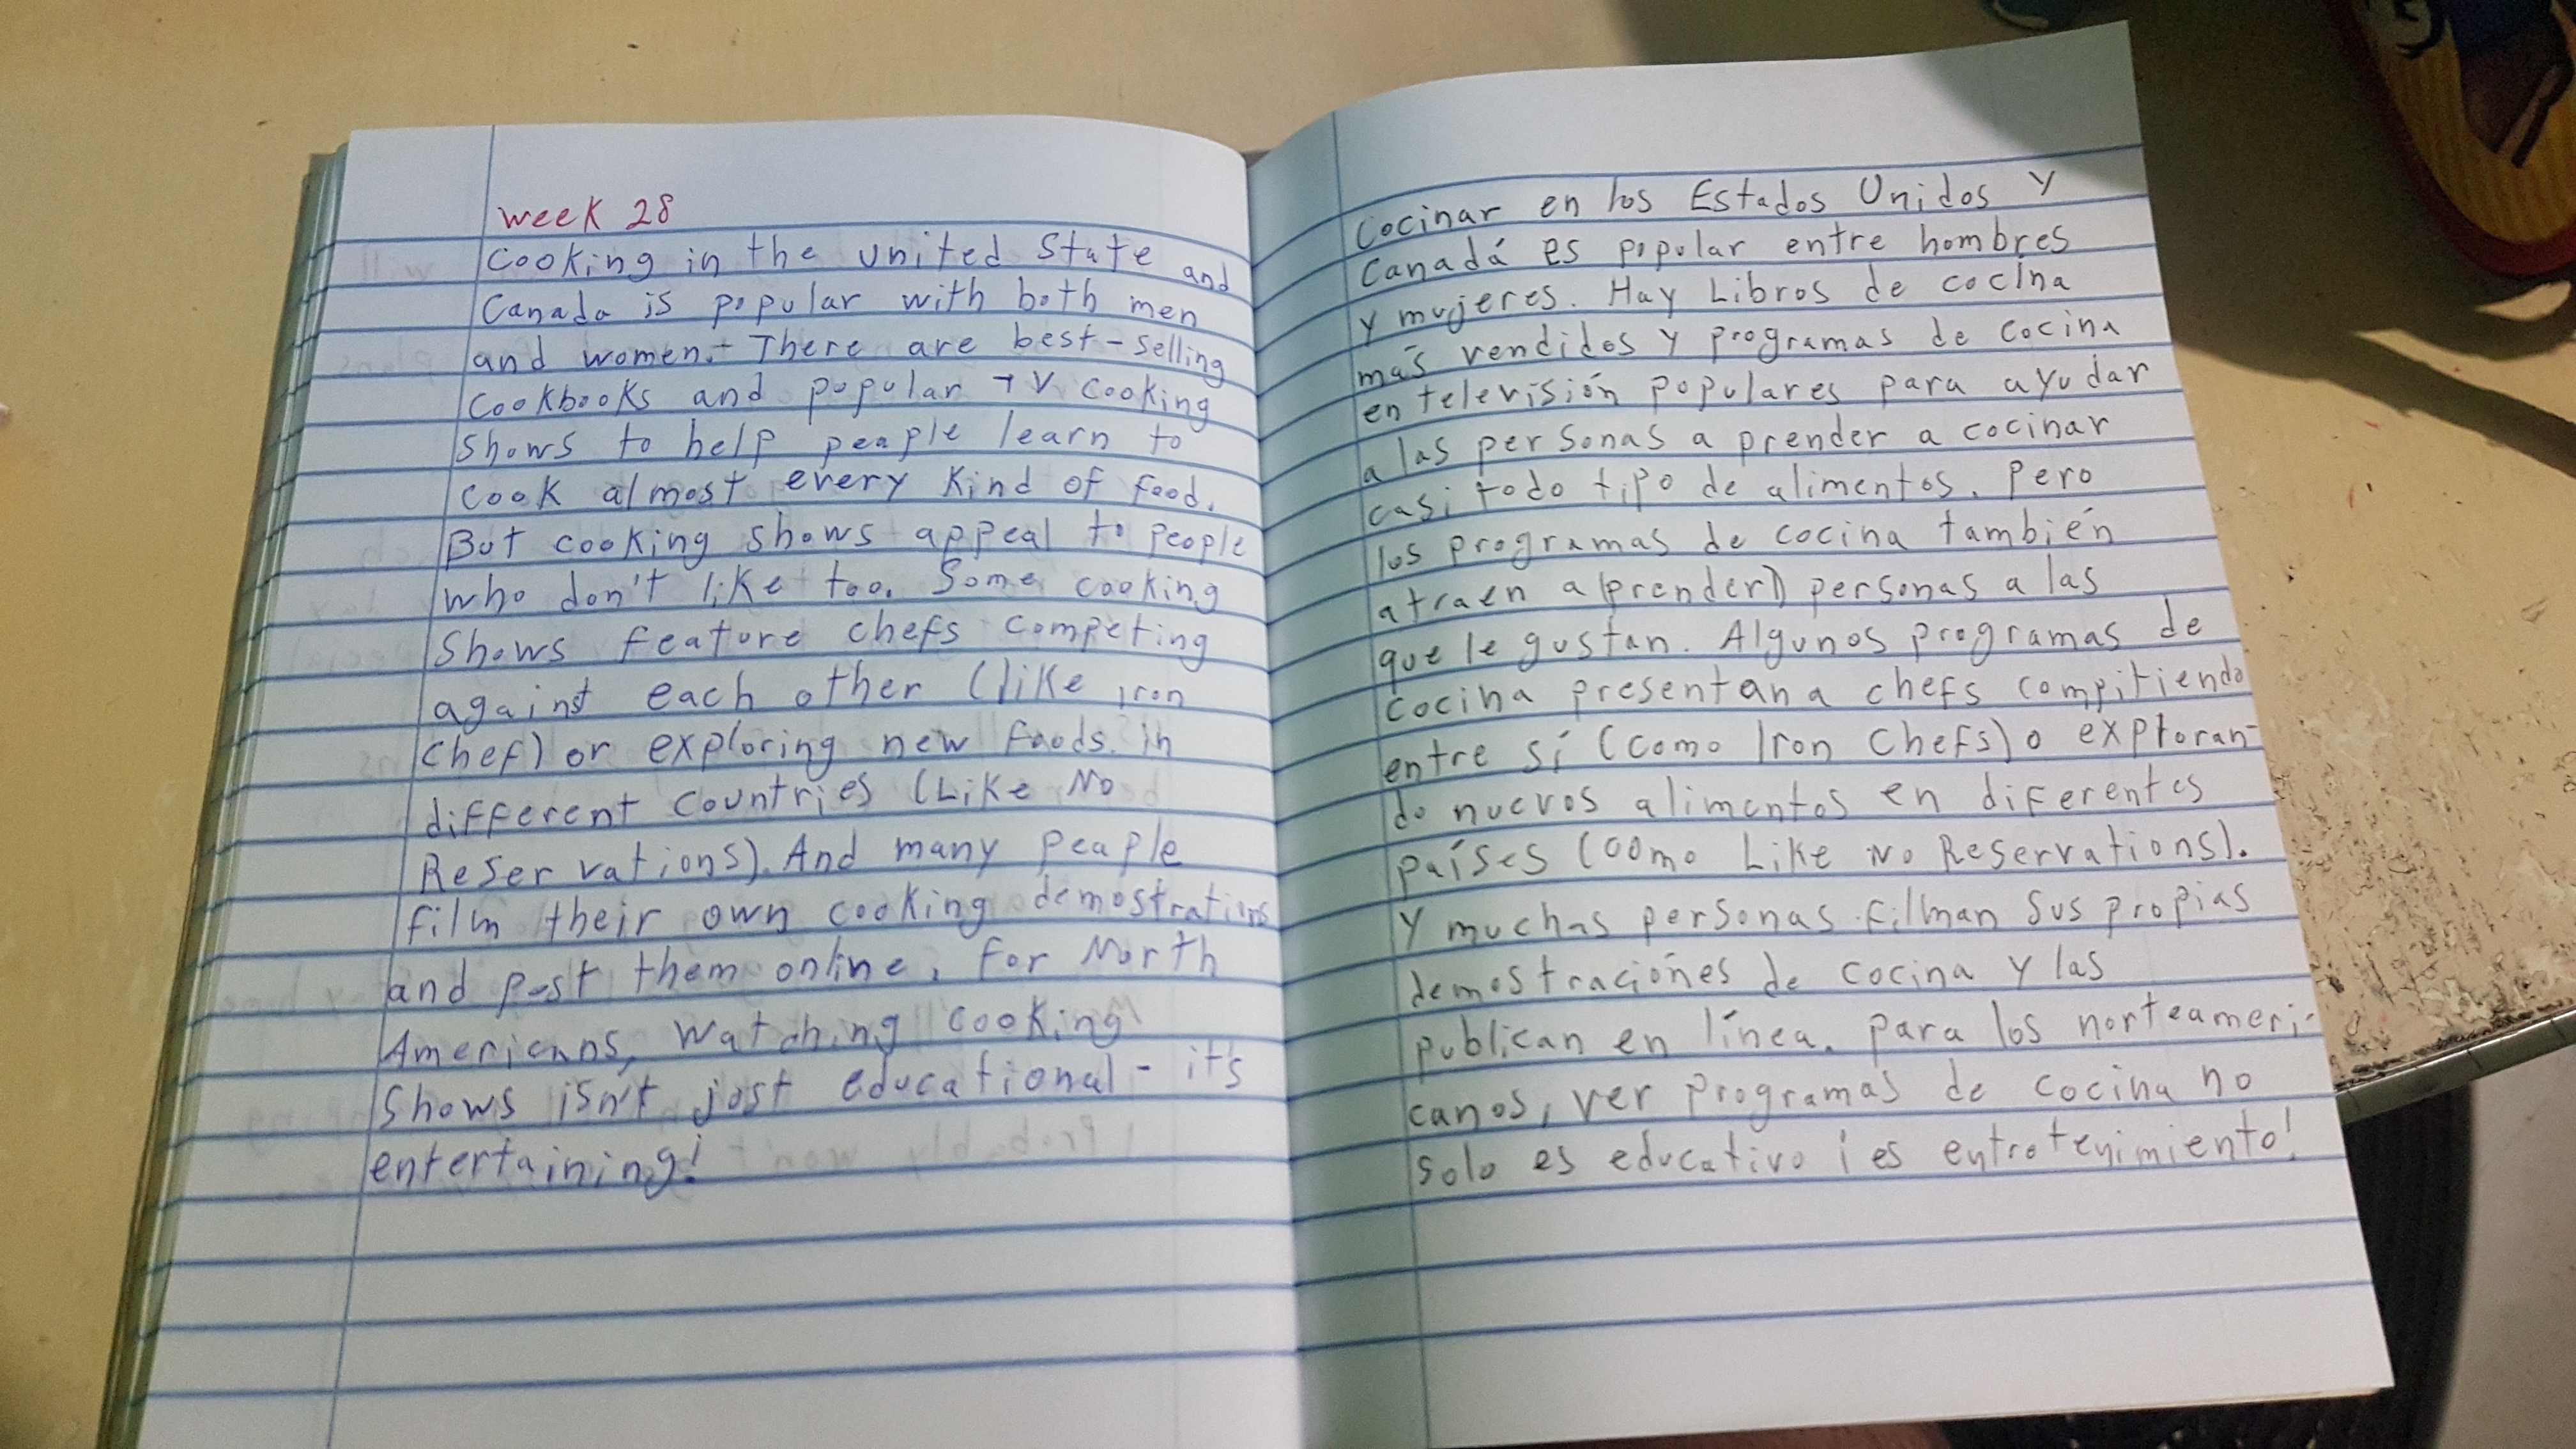 week 28
Cooking in the United State and
Canada is popular with both men
and women. There are best-selling
Cookbooks and popular TV cooking
Shows to help peaple learn to
Cook almost every kind of food.
But cooking shows appeal to people
who don't like too. Some cooking
Shows feature chefs competing
against each other (like iron
Chef) or exploring new foods. in
different Countries (Like No
Reservations). And many peaple
film their own cooking demostrations
and post them online, for North
Americans, watching cooking
Shows isn't just educational - it's
entertaining!
Cocinar en los Estados Unidos y
Canadá es popular entre hombres
y mujeres. Hay Libros de cocina
más vendidos y programas de cocina
en televisión populares para ayudar
a las personas a prender a cocinar
casi todo tipo de alimentos. Pero
los programas de cocina también
atraen a (prender) personas a las
que le gustan. Algunos programas de
cocina presentan a chefs compitiendo
entre sí (como Iron Chefs) o exploran-
do nuevos alimentos en diferentes
países (como Like No Reservations).
Y muchas personas filman sus propias
demostraciónes de cocina y las
publican en línea. Para los norteameri-
canos, ver programas de cocina no
solo es educativo ¡es entretenimiento!